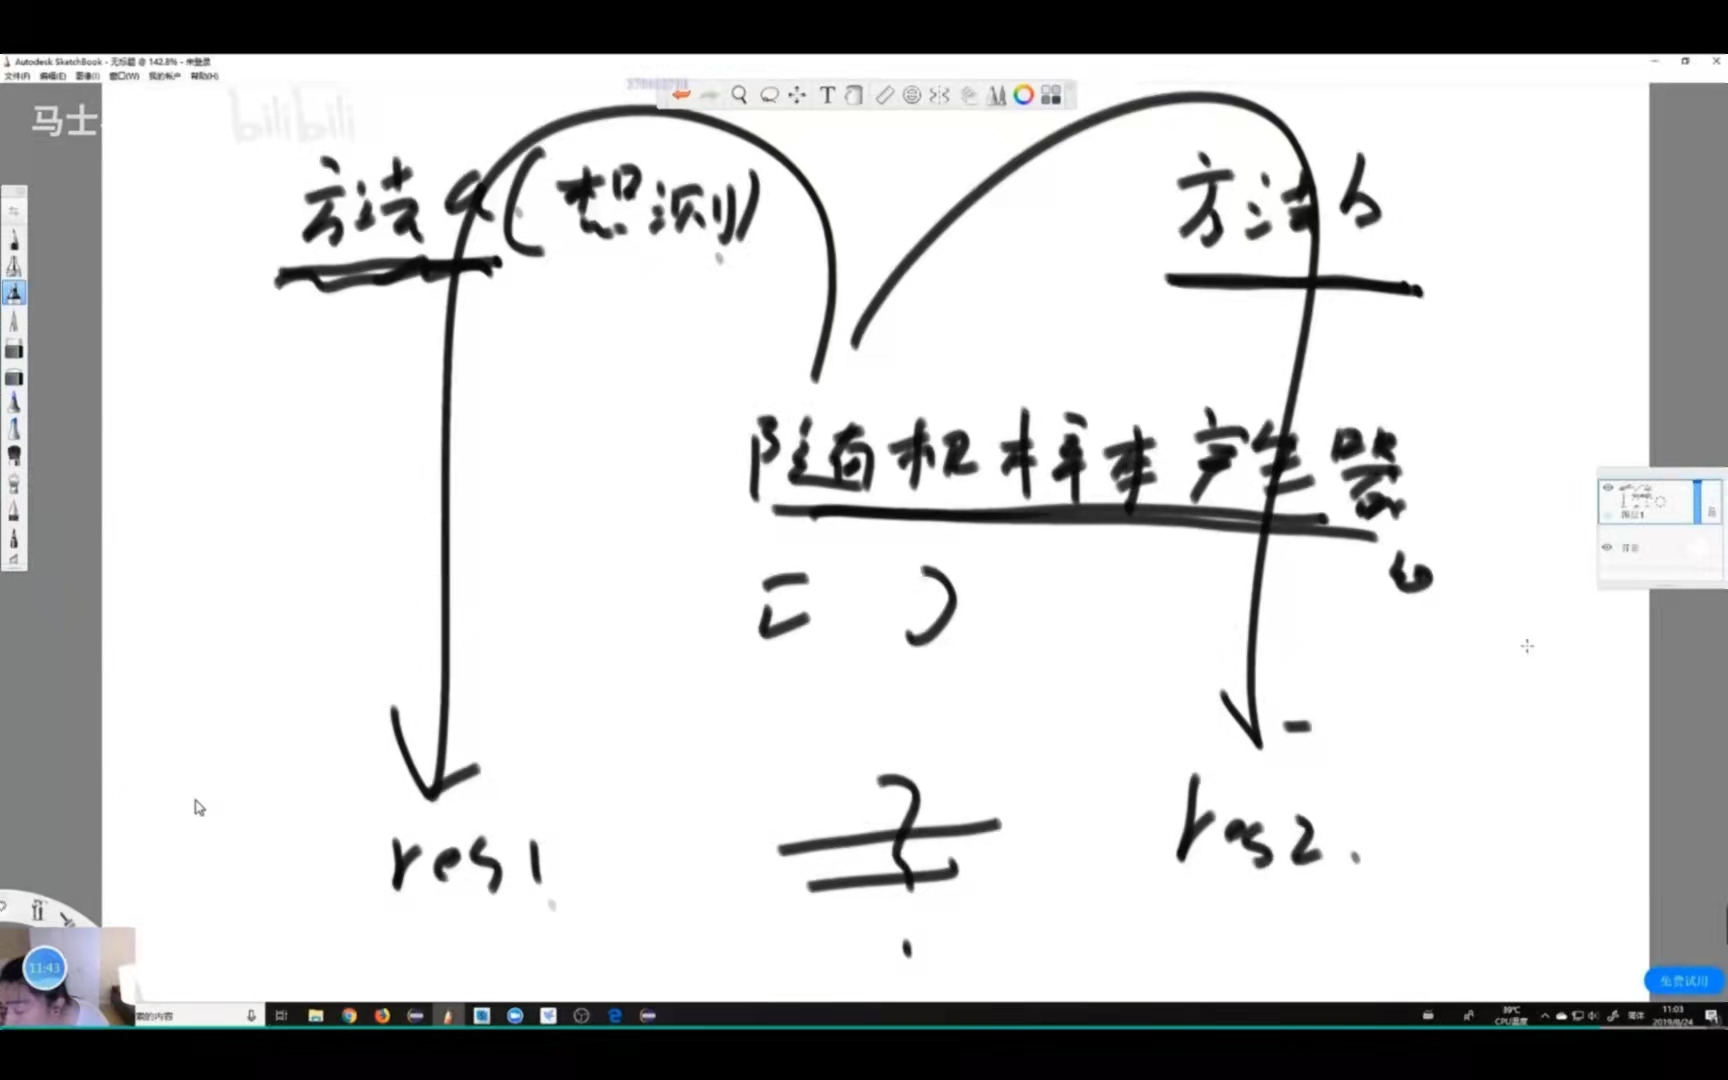 Autodesk SketchBook - 无标题 @ 142.8% - 未登录
文件(F) 编辑(E) 图像(I) 窗口(W) 我的帐户 帮助(H)
马士
bilibili
方法a (想测)
方法b
随机样本产生器
res1
=?
res2.
图层1
背景
11:43
免费试用
索的内容
39℃
CPU温度
简体
11:03
2019/8/24